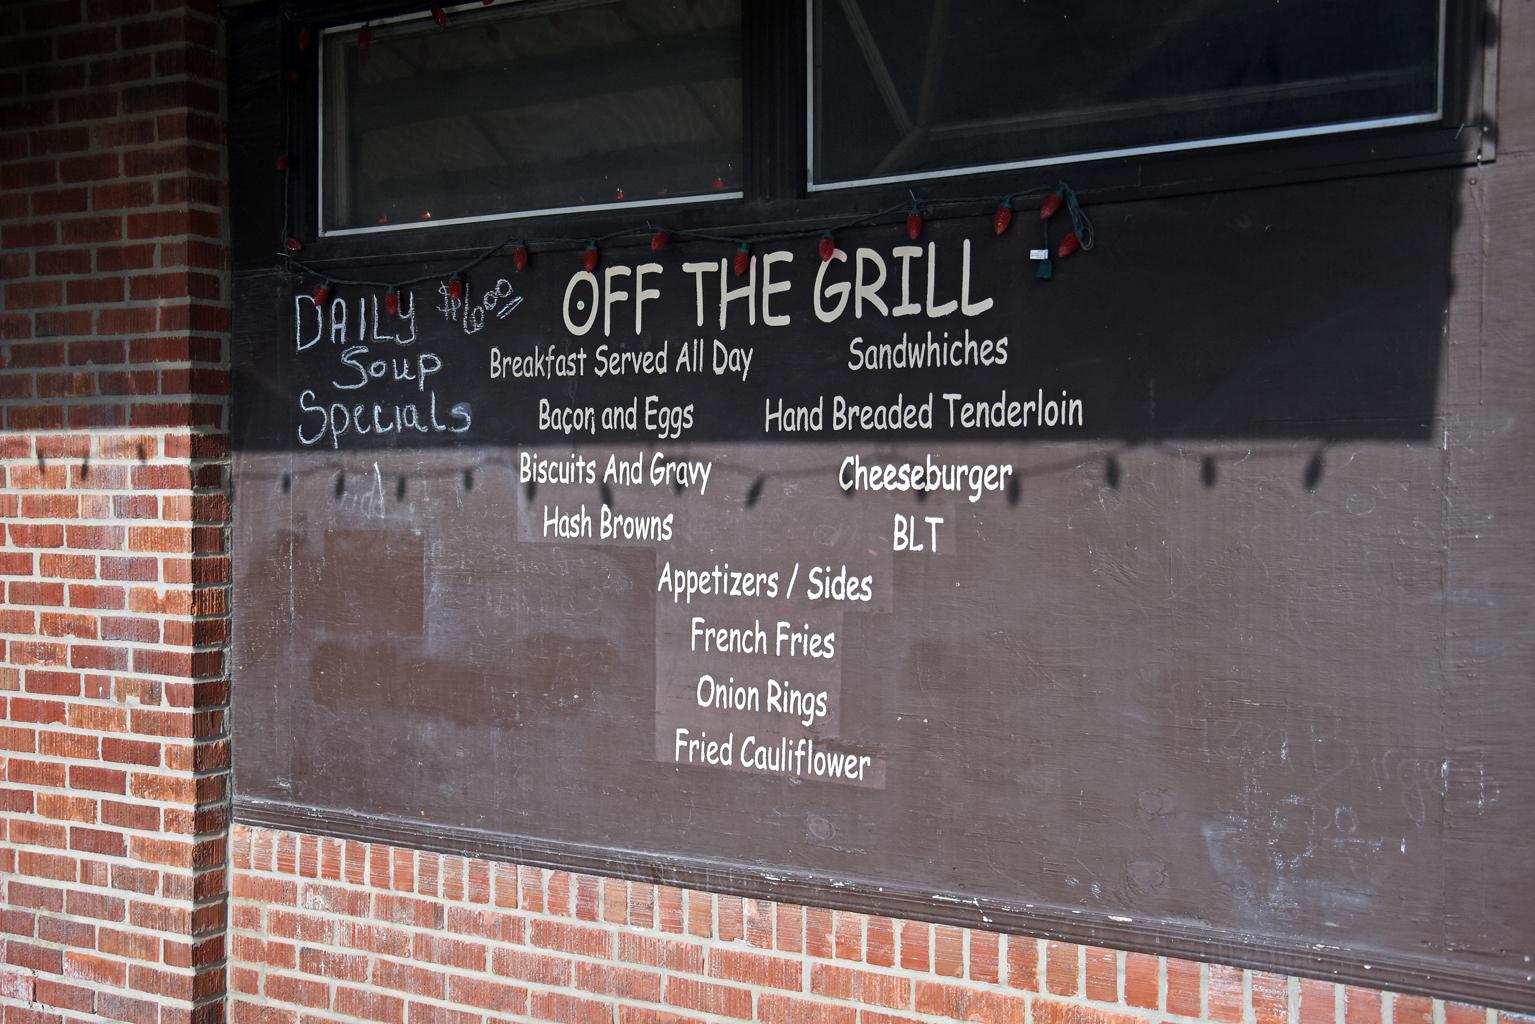 OFF THE GRILL
DAILY $6.00
Soup
Specials
Breakfast Served All Day
Bacon and Eggs
Biscuits And Gravy
Hash Browns
Sandwhiches
Hand Breaded Tenderloin
Cheeseburger
BLT
Appetizers / Sides
French Fries
Onion Rings
Fried Cauliflower